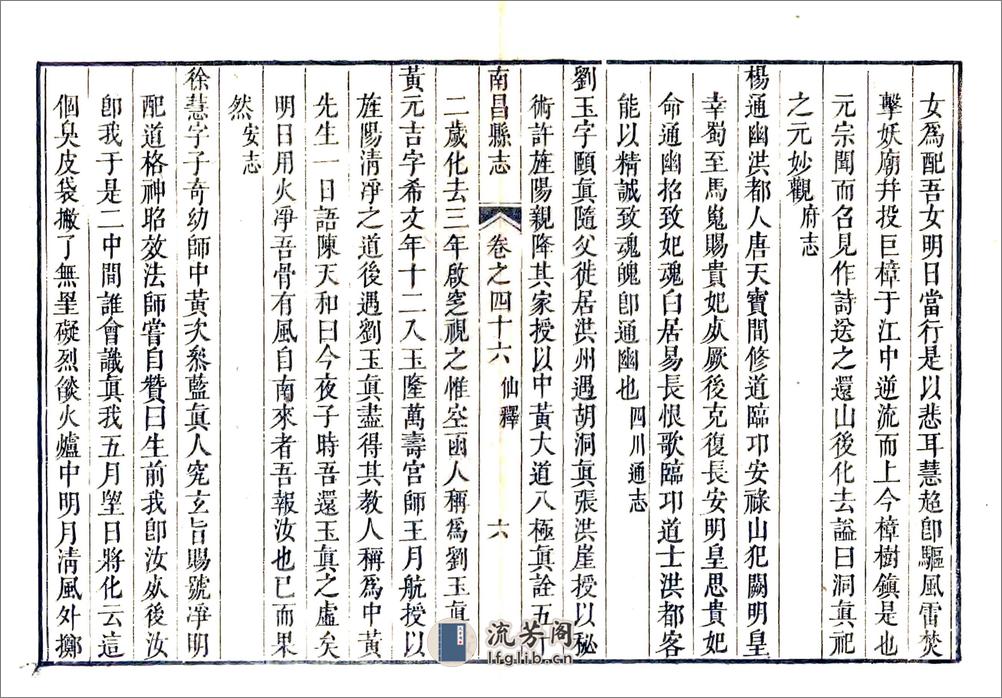 女爲配吾女明日當行是以悲耳慧超卽驅風雷焚
擊妖廟幷投巨樟于江中逆流而上今樟樹鎭是也
元宗聞而召見作詩送之還山後化去謚曰洞眞祀
之元妙觀府志
楊通幽洪都人唐天寶間修道臨邛安祿山犯闕明皇
幸蜀至馬嵬賜貴妃死厥後克復長安明皇思貴妃
命通幽招致妃魂白居易長恨歌臨邛道士洪都客
能以精誠致魂魄卽通幽也四川通志
劉玉字頤眞隨父徙居洪州遇胡洞眞張洪崖授以秘
術許旌陽親降其家授以中黃大道八極眞詮五十
南昌縣志 卷之四十六 仙釋 六
二歲化去三年啟窆視之惟空函人稱爲劉玉眞
黃元吉字希文年十二入玉隆萬壽宮師王月航授以
旌陽淸凈之道後遇劉玉眞盡得其教人稱爲中黃
先生一日語陳天和曰今夜子時吾還玉眞之虛矣
明日用火凈吾骨有風自南來者吾報汝也已而果
然安志
徐慧字子奇幼師中黃次叅藍眞人究玄旨賜號凈明
配道格神昭效法師嘗自贊曰生前我卽汝死後汝
卽我于是二中間誰會識眞我五月朢日將化云這
個臭皮袋撇了無罣礙烈燄火爐中明月淸風外擲
流芳阁
lfglib.cn